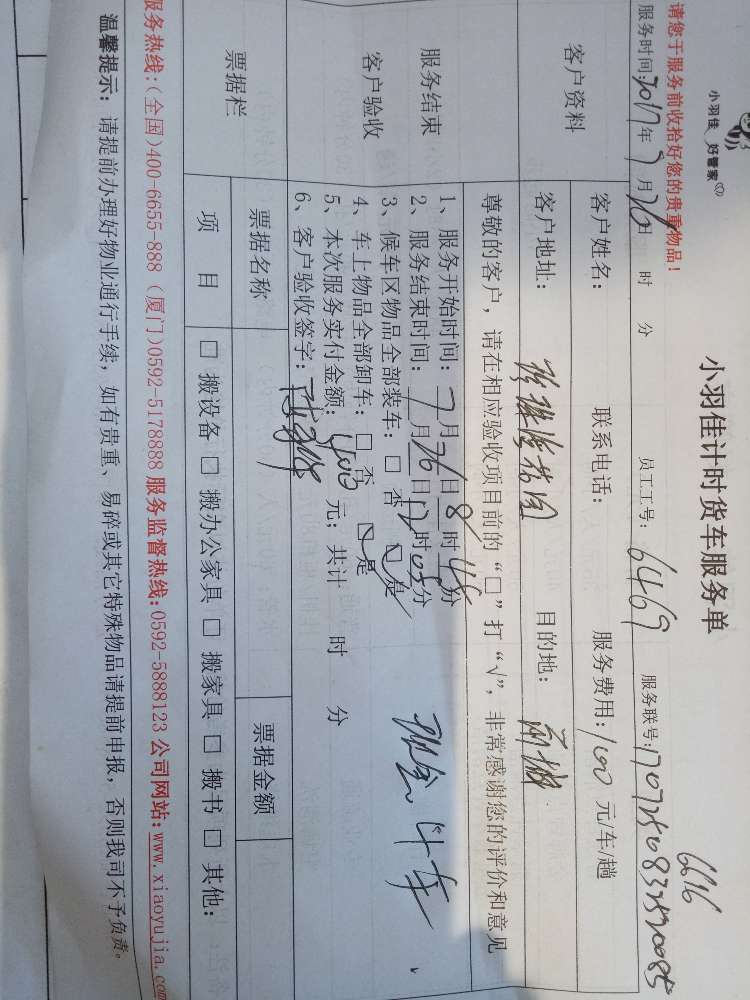 小羽佳 好管家
小羽佳计时货车服务单
6616
请您于服务前收拾好您的贵重物品!
服务时间:2017年7月26日 时 分 员工工号: 6469 服务联号:
客户资料
客户姓名: 联系电话: 服务费用:100 元/车/趟
客户地址: 目的地:
尊敬的客户,请在相应验收项目前的“□”打“√”,非常感谢您的评价和意见
服务结束
客户验收
1、服务开始时间: 7月26日8时45分
2、服务结束时间: 7月26日12时05分
3、候车区物品全部装车: □ 否 ☑ 是
4、车上物品全部卸车: □ 否 ☑ 是
5、本次服务实付金额: 400 元; 共计 时 分
6、客户验收签字:
现金 4车
票据栏
票据名称 票据金额
项 目 □ 搬设备 □ 搬办公家具 □ 搬家具 □ 搬书 □ 其他:
服务热线:(全国)400-6655-888 (厦门)0592-5178888 服务监督热线:0592-5888123 公司网站:www.xiaoyujia.com
温馨提示: 请提前办理好物业通行手续, 如有贵重、易碎或其它特殊物品请提前申报, 否则我司不予负责。